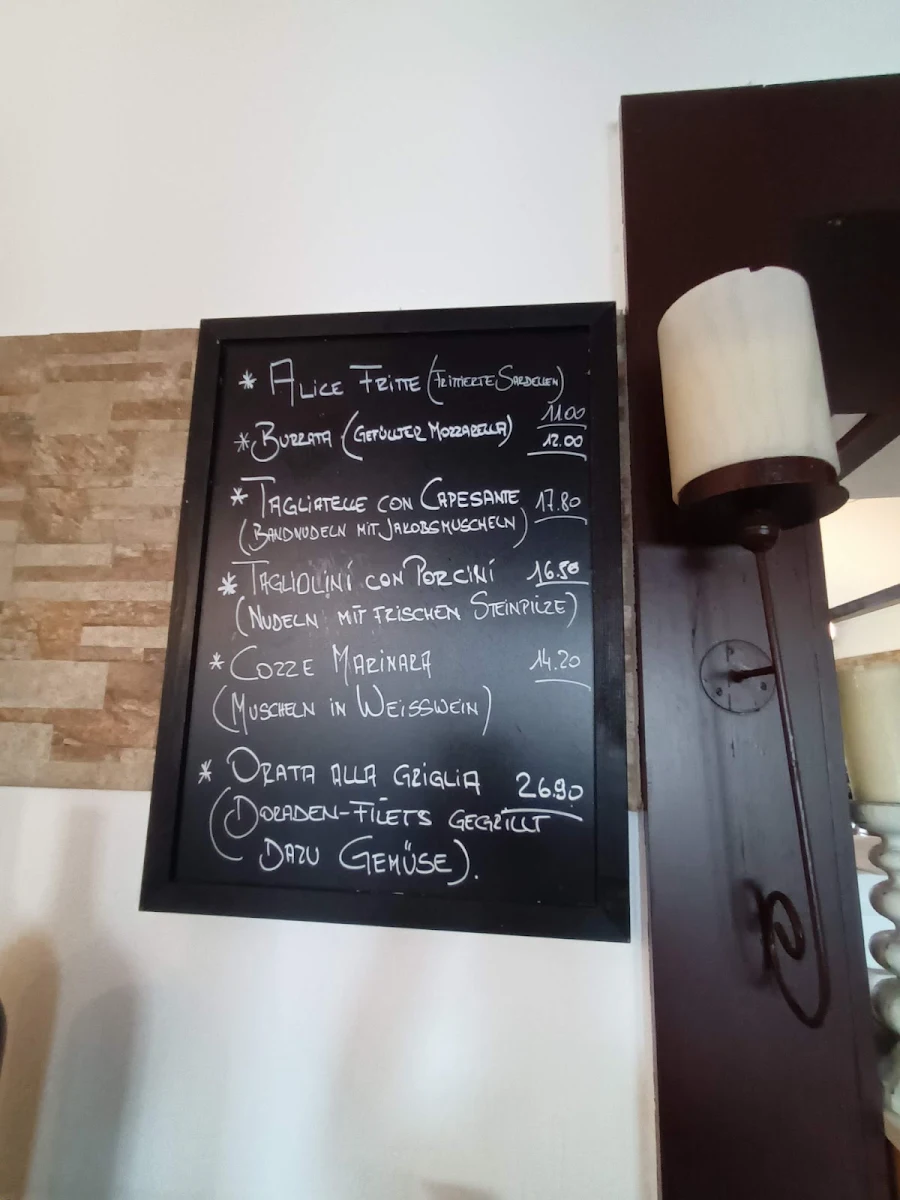 * ALICE FRITTE (FRITTIERTE SARDELLEN)
11.00
* BURRATA (GEFÜLLTER MOZZARELLA) 12.00
* TAGLIATELLE CON CAPESANTE 17.80
(BANDNUDELN MIT JAKOBSMUSCHELN)
* TAGLIOLINI CON PORCINI 16.50
(NUDELN MIT FRISCHEN STEINPILZE)
* COZZE MARINARA 14.20
(MUSCHELN IN WEISSWEIN)
* ORATA ALLA GRIGLIA 26.90
(DORADEN-FILETS GEGRILLT
DAZU GEMÜSE).